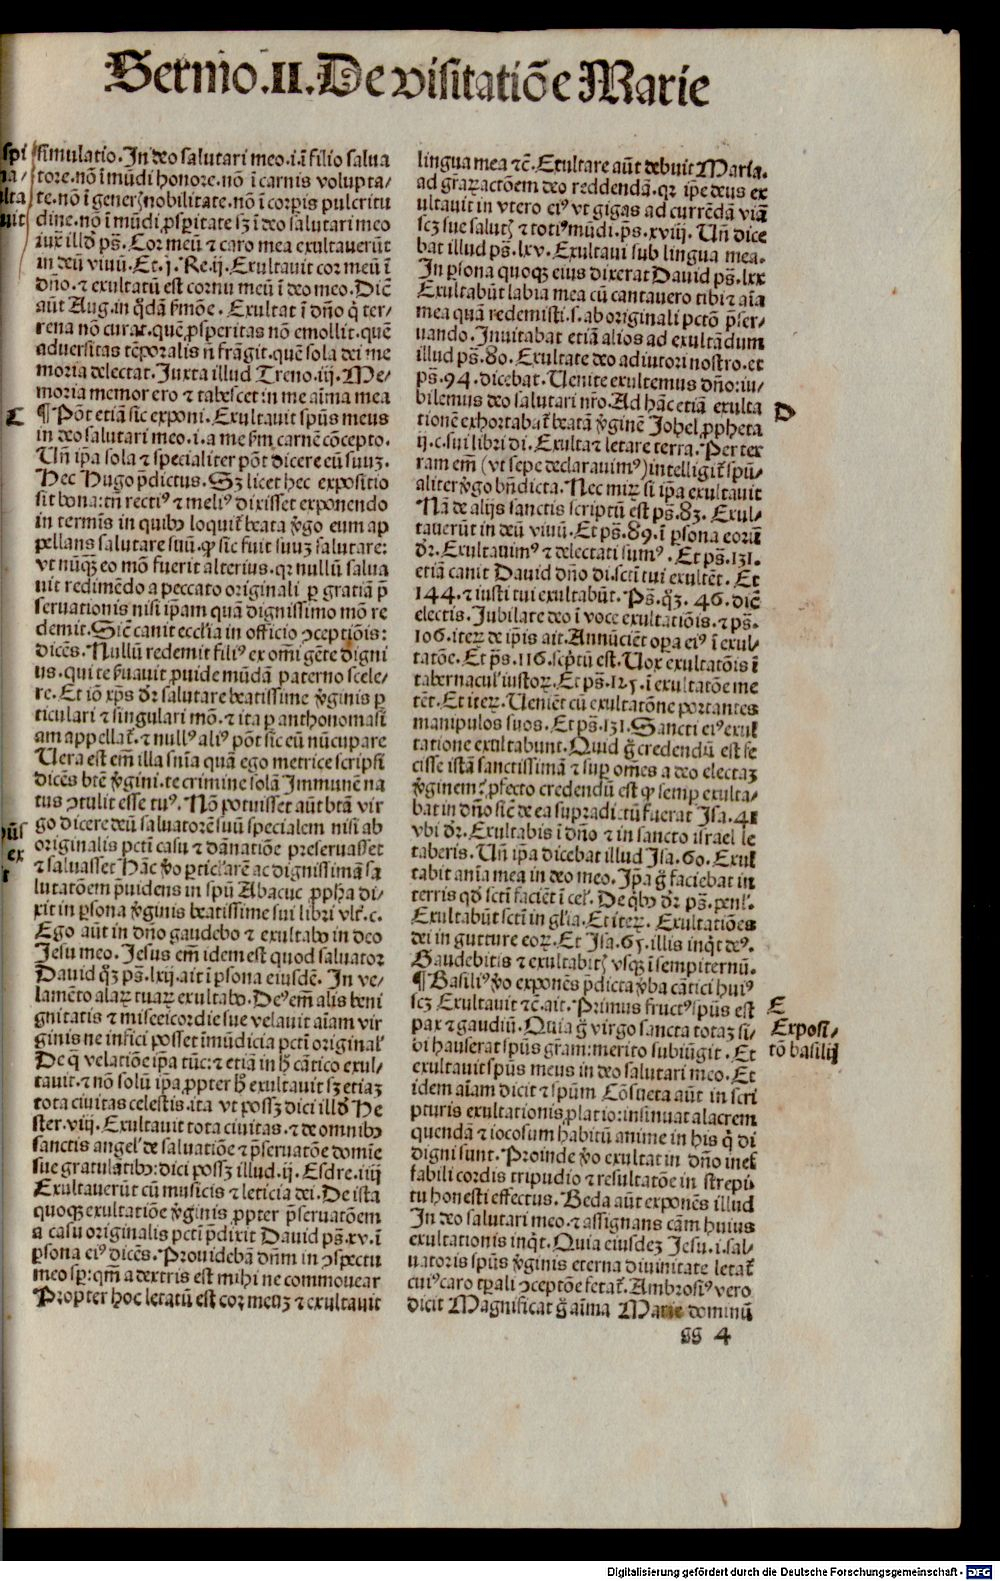 Sermo.II.De visitatiõe Marie
simulatio. In deo salutari meo.i.ĩ filio salua
tore.nõ ĩ mũdi honore.nõ ĩ carnis volupta/
te.nõ ĩ generꝫ nobilitate.nõ ĩ corpis pulcritu
dine.nõ ĩ mũdi ꝓspitate sꝫ ĩ deo salutari meo
iux̃ illd̃ ps̃. Cor meũ ⁊ caro mea exultauerũt
in deũ viuũ. Et.j. Re.ij. Exultauit cor meũ ĩ
dño.⁊ exultatũ est cornu meũ ĩ deo meo. Diẽ
aũt Aug.in q̃dã ẜmõe. Exultat ĩ dño q̃ ter/
rena nõ curat.quẽ ꝓsperitas nõ emollit.quẽ
aduersitas tẽporalis ñ frãgit.quẽ sola dei me
moria delectat. Juxta illud Treno.iij. Me/
moria memor ero ⁊ tabescet in me aĩma mea
¶ Põt etiã sic exponi. Exultauit spũs meus
in deo salutari meo.i.a me ẜm carnẽ cõcepto.
Uñ ipa sola ⁊ specialiter põt dicere eũ suuꝫ.
Hec Hugo p̃dictus. Sꝫ licet hec expositio
sit bona: tñ rectiꝰ ⁊ meliꝰ dixisset exponendo
in termis in quibꝰ loquit̃ beata ṽgo eum ap
pellans salutare suũ. ꝙ sic fuit suuꝫ salutare:
vt nũqꝫ eo mõ fuerit alterius.qꝛ nullũ salua
uit redimẽdo a peccato originali ꝑ gratiã p̃
seruationis nisi ipam quã dignissimo mõ re
demit. Siẽ canit ecclia in officio ꝯceptiõis:
dicẽs. Nullũ redemit filiꝰ ex omi gẽte digni
us.qui te ẜuauit ꝓuide mũdã paterno scele/
re. Et iõ xp̃s dr̃ salutare beatissime ṽginis ꝑ
ticulari ⁊ singulari mõ.⁊ ita ꝑ anthonomasi
am appellat̃.⁊ nullꝰ aliꝰ põt sic eũ nũcupare
Uera est em̃ illa snĩa quã ego metrice scripsi
dicẽs btẽ ṽgini.te crimine solã Immunẽ na
tus ꝯtulit esse tuꝰ. Nã potuisset aũt btã vir
go dicere deũ saluatorẽ suũ specialem nisi ab
originalis pcti casu ⁊ dãnatiõe preseruasset
⁊ saluasset Hãc ṽo ꝑticlarẽ ac dignissimã sa
lutatõem p̃uidens in spũ Abacuc ꝓpha di/
xit in ꝑsona ṽginis beatissime sui libri vlt̃.c.
Ego aũt in dño gaudebo ⁊ exultabo in deo
Jesu meo. Jesus em̃ idem est quod saluator
Dauid qꝫ ps̃.lxij.ait ĩ ꝑsona eiusdẽ. In ve/
lamẽto alaꝝ tuaꝝ exultabo. Deꝰ em̃ alis beni
gnitatis ⁊ misericordie sue velauit aĩam vir
ginis ne infici posset ĩmũdicia pcti original̃
De q̃ velatiõe ipa tũc: ⁊ etiã in hͦ cãtico exul/
tauit.⁊ nõ solũ ipa ꝓpter hͦ exultauit sꝫ etiaꝫ
tota ciuitas celestis.ita vt possꝫ dici illd̃ He
ster.viij. Exultauit tota ciuitas.⁊ de omnibꝰ
sanctis angel̃ de saluatiõe ⁊ p̃seruatõe domie
sue gratulãtibꝰ: dici possꝫ illud.ij. Esdre.iiij
Exultauerũt cũ musicis ⁊ leticia dei. De ista
quoqꝫ exultatiõe ṽginis ꝓpter p̃seruatõem
a casu originalis pcti p̃dixit Dauid ps̃.xv.ĩ
ꝑsona eiꝰ dicẽs. Prouidebã dñm in ꝯspectu
meo sp: qm̃ a dextris est mihi ne commouear
Propter hoc letatũ est cor meuꝫ ⁊ exultauit
lingua mea ⁊c̃. Exultare aũt debuit Maria.
ad gr̃aꝝactõem deo reddendã.qꝛ ipe deus ex
ultauit in vtero eiꝰ vt gigas ad currẽdã viã
scꝫ sue salutꝫ ⁊ totiꝰ mũdi.ps̃.xviij. Uñ dice
bat illud ps̃.lxv. Exultaui sub lingua mea.
In ꝑsona quoqꝫ eius dixerat Dauid ps̃.lxx
Exultabũt labia mea cũ cantauero tibi ⁊ aĩa
mea quã redemisti.s.ab originali pctõ p̃ser/
uando. Inuitabat etiã alios ad exultãdum
illud ps̃.80. Exultate deo adiutori nostro.et
ps̃.94.dicebat. Uenite exultemus dño: iu/
bilemus deo salutari nr̃o. Ad hãc etiã exulta
tionẽ exhortabat̃ beatã ṽginẽ Johel ꝓpheta
ij.c.sui libri di. Exulta ⁊ letare terra. Per ter
ram em̃ (vt sepe declarauimꝰ) intelligit̃ spũ/
aliter ṽgo bñdicta. Nec miꝝ si ipa exultauit
Nã de alijs sanctis scriptũ est ps̃.83. Exul/
tauerũt in deũ viuũ. Et ps̃.89.ĩ ꝑsona eorũ
dr̃. Exultauimꝰ ⁊ delectati sumꝰ. Et ps̃.131.
etiã canit Dauid dño di.scti tui exultẽt. Et
144.⁊ iusti tui exultabũt. Ps̃.qꝫ.46.diẽ
electis. Jubilate deo ĩ voce exultatiõis.⁊ ps̃.
106.iteꝝ de ipis ait. Annũciẽt opa eiꝰ ĩ exul/
tatõe. Et ps̃.116.scptũ est. Uox exultatõis ĩ
tabernacul̃ iustoꝝ. Et ps̃.125.ĩ exultatõe me
tẽt. Et iteꝝ. Ueniẽt cũ exultatõne portantes
manipulos suos. Et ps̃.131. Sancti eiꝰ exul
tatione exultabunt. Quid g̃ credendũ est fe
cisse istã sanctissimã ⁊ suꝑ om̃es a deo electaꝫ
ṽginem? ꝓfecto credendũ est ꝙ semp exulta/
bat in dño siẽ de ea supradictũ fuerat Isa.41
vbi dr̃. Exultabis ĩ dño ⁊ in sancto israel le
taberis. Uñ ipa dicebat illud Isa.60. Exul
tabit anĩa mea in deo meo. Ipa g̃ faciebat in
terris qd̃ scti faciẽt ĩ cel̃. De qͥbꝰ dr̃ ps̃.penl̃.
Exultabũt scti in glia. Et iteꝝ. Exultatiões
dei in gutture eoꝝ. Et Isa.65.illis inqͥt deꝰ.
Gaudebitis ⁊ exultabitꝫ vsqꝫ ĩ sempiternũ.
¶ Basiliꝰ ṽo exponẽs p̃dicta ṽba cãtici huiꝰ
scꝫ Exultauit ⁊c̃.ait. Primus fructꝰ spũs est
pax ⁊ gaudiũ. Quia g̃ virgo sancta totaꝫ si/
bi hauserat spũs gr̃am: merito subiũgit. Et
exultauit spũs meus in deo salutari meo. Et
idem aĩam dicit ⁊ spũm Cõsueta aũt in scri
pturis exultationis ꝓlatio: insinuat alacrem
quendã ⁊ iocosum habitũ anime in his q̃ di
digni sunt. Proinde ṽo exultat in dño inef
fabili cordis tripudio ⁊ resultatõe in strepi/
tu honesti effectus. Beda aũt exponẽs illud
In deo salutari meo.⁊ assignans cãm huius
exultationis inqͥt. Quia eiusdeꝫ Jesu.i.sal/
uatoris spũs ṽginis eterna diuinitate letat̃
cuiꝰ caro tꝑali ꝯceptõe fetat̃. Ambrosiꝰ vero
dicit Magnificat g̃ aĩma Marie dominũ
C
D
E
Exposi/
tõ basilij
gg 4
Digitalisierung gefördert durch die Deutsche Forschungsgemeinschaft - DFG